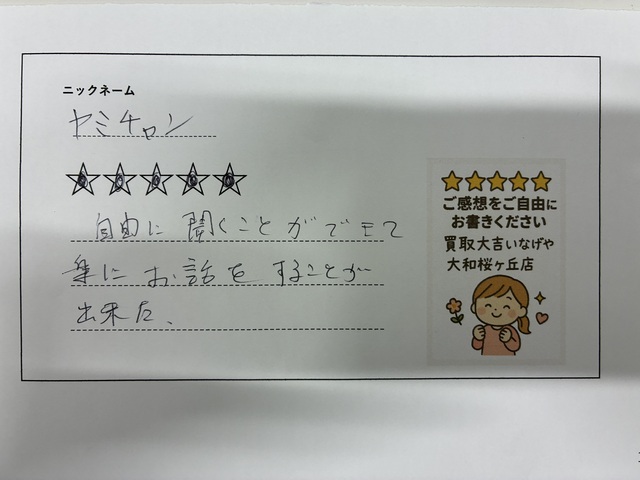 ニックネーム
ヤミチャン
自由に聞くことができて
楽にお話をすることが
出来た、
ご感想をご自由に
お書きください
買取大吉いなげや
大和桜ヶ丘店